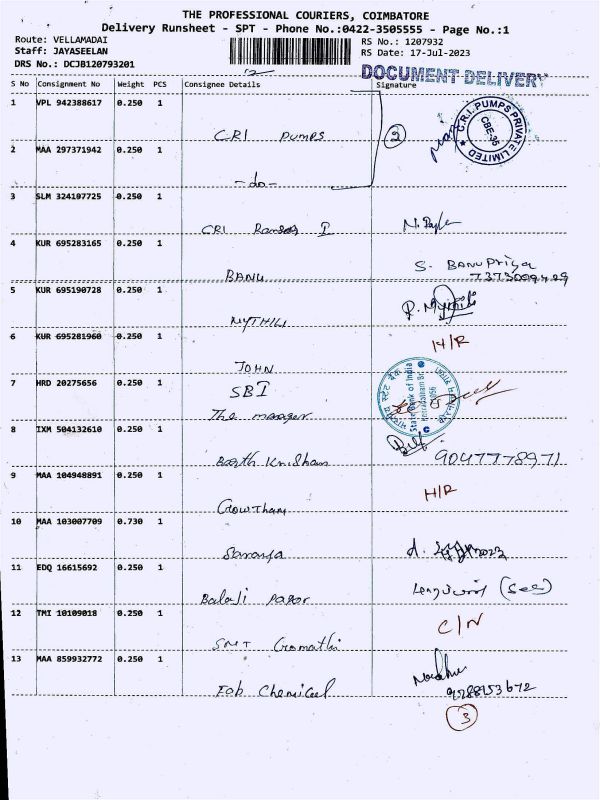 THE PROFESSIONAL COURIERS, COIMBATORE
Delivery Runsheet - SPT - Phone No.:0422-3505555 - Page No.:1
Route: VELLAMADAI
Staff: JAYASEELAN
DRS No.: DCJB120793201
RS No.: 1207932
RS Date: 17-Jul-2023
12
DOCUMENT DELIVERY
S No Consignment No Weight PCS Consignee Details Signature
1 VPL 942388617 0.250 1
C.R.I PUMPS
2
C.R.I. PUMPS PRIVATE LIMITED
CBE-35
2 MAA 297371942 0.250 1
-do-
3 SLM 324107725 0.250 1
CRI
4 KUR 695283165 0.250 1
BANU
S. BANUPriya
5 KUR 695190728 0.250 1
MYTHILI
6 KUR 695281960 0.250 1
JOHN
H/R
7 HRD 20275656 0.250 1
SBI
The manager
State Bank of India
भारतीय स्टेट बैंक
8 IXM 504132610 0.250 1
9047778971
9 MAA 104948891 0.250 1
Gowtham
H/R
10 MAA 103007709 0.730 1
Saranya
11 EDQ 16615692 0.250 1
Balaji Paper
12 TMI 10109018 0.250 1
SMT Gomathi
C/N
13 MAA 859932772 0.250 1
Fab Chemical
9788153672
3